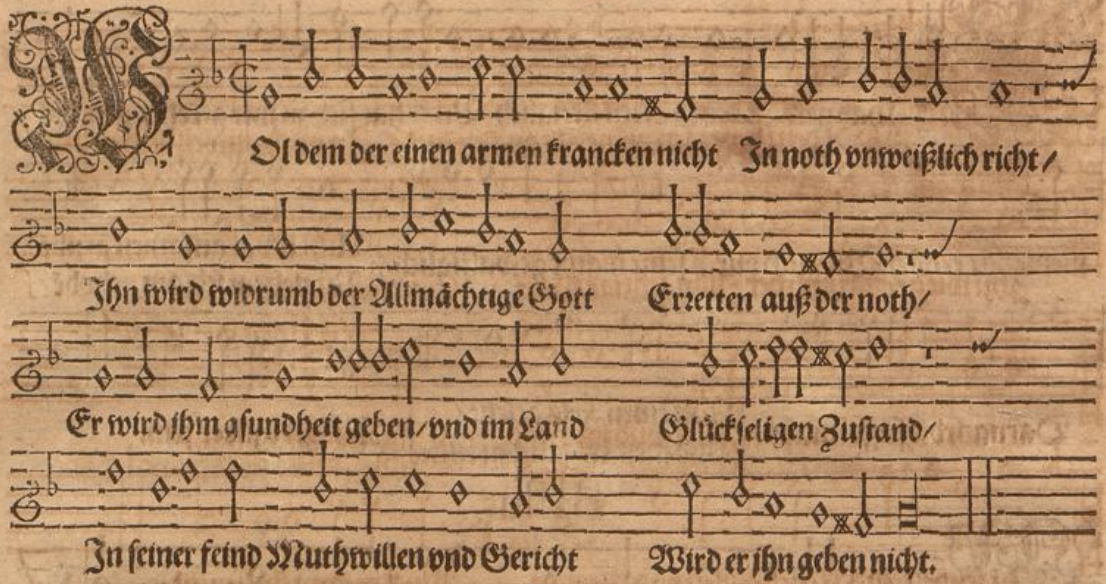 WOl dem der einen armen krancken nicht In noth vnweißlich richt/
Ihn wird widrumb der Allmächtige Gott Erretten auß der noth/
Er wird jhm gsundheit geben/vnd im Land Glückseligen Zustand/
In seiner feind Muthwillen vnd Gericht Wird er jhn geben nicht.